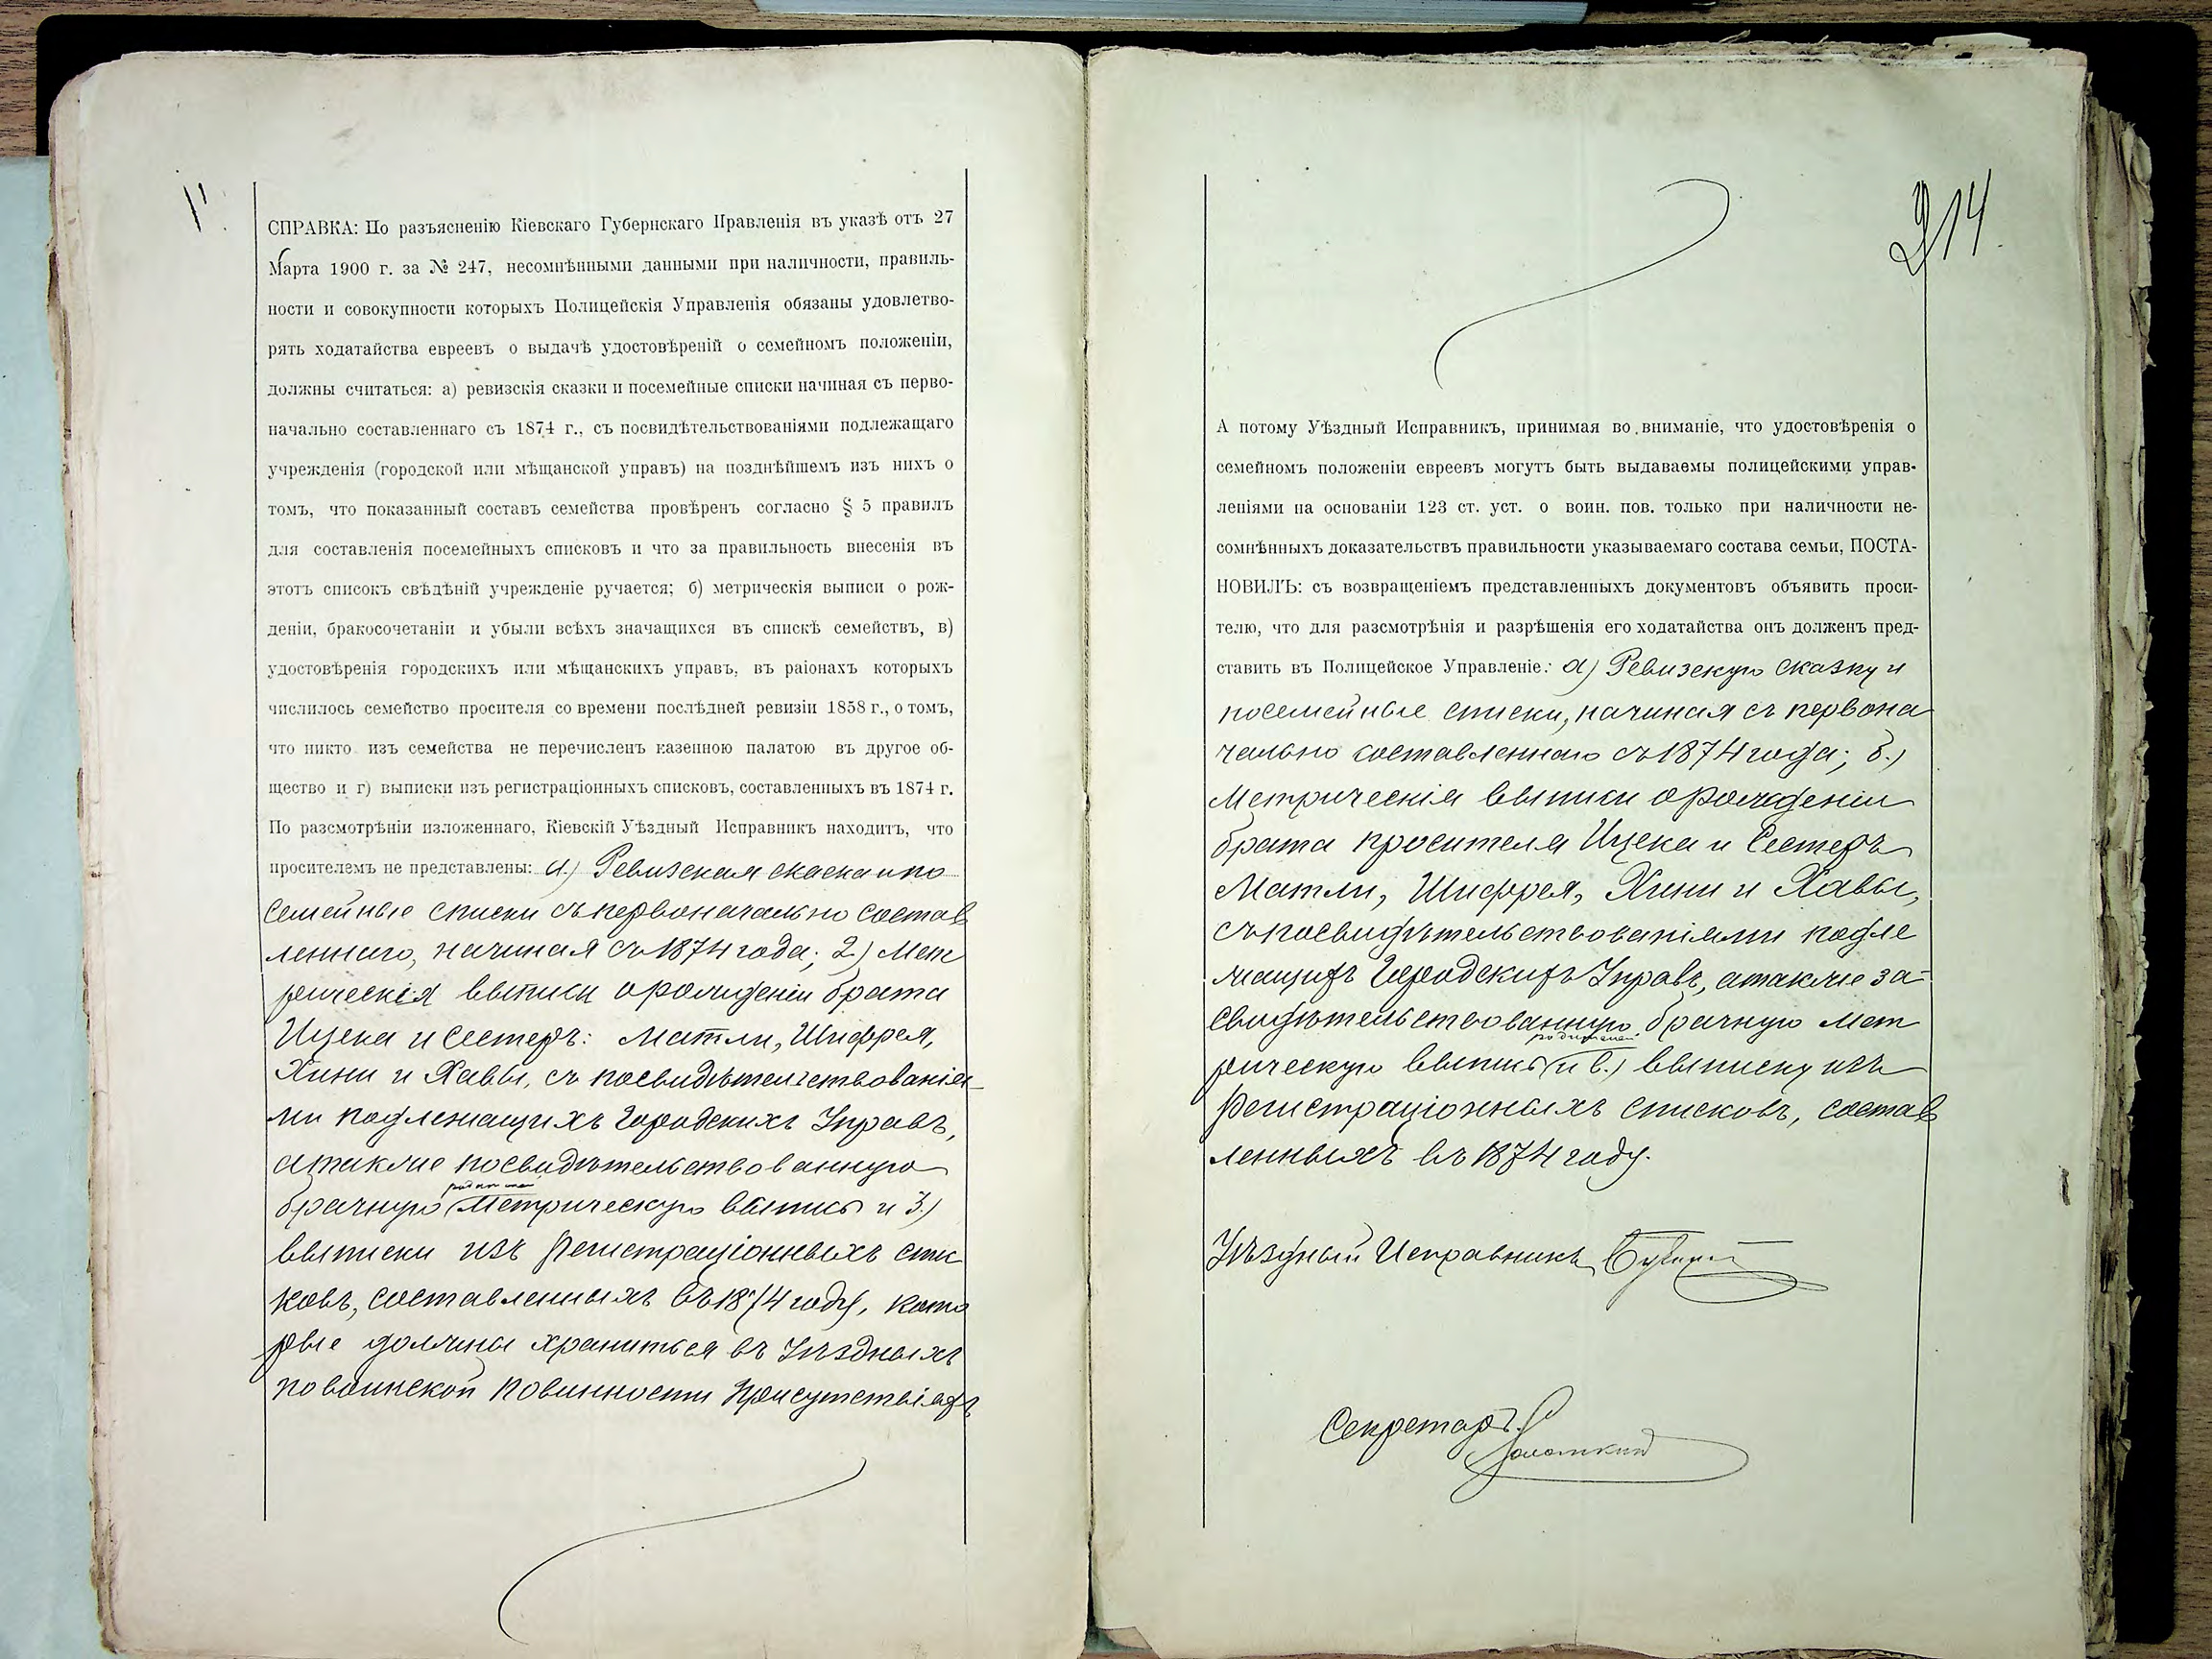 СПРАВКА: По разъясненію Кіевскаго Губернскаго Правленія въ указѣ отъ 27
Марта 1900 г. за № 247, несомнѣнными данными при наличности, правиль-
ности и совокупности которыхъ Полицейскія Управленія обязаны удовлетво-
рять ходатайства евреевъ о выдачѣ удостовѣреній о семейномъ положеніи,
должны считаться: а) ревизскія сказки и посемейные списки начиная съ перво-
начально составленнаго съ 1874 г., съ посвидѣтельствованіями подлежащаго
учрежденія (городской или мѣщанской управъ) на позднѣйшемъ изъ нихъ о
томъ, что показанный составъ семейства провѣренъ согласно § 5 правилъ
для составленія посемейныхъ списковъ и что за правильность внесенія въ
этотъ списокъ свѣдѣній учрежденіе ручается; б) метрическія выписи о рож-
деніи, бракосочетаніи и убыли всѣхъ значащихся въ спискѣ семействъ, в)
удостовѣренія городскихъ или мѣщанскихъ управъ, въ раіонахъ которыхъ
числилось семейство просителя со времени послѣдней ревизіи 1858 г., о томъ,
что никто изъ семейства не перечисленъ казенною палатою въ другое об-
щество и г) выписки изъ регистраціонныхъ списковъ, составленныхъ въ 1874 г.
По разсмотрѣніи изложеннаго, Кіевскій Уѣздный Исправникъ находитъ, что
просителемъ не представлены: а.) Ревизская скаска и по
семейные списки съ первоначально состав
леннаго, начиная съ 1874 года; 2.) Мет
рическія выписи о рожденіи брата
Ицека и сестеръ: Матли, Шифрея,
Хини и Хавы, съ посвидѣтельствованія-
ми подлежащихъ Городскихъ Управъ,
а также посвидѣтельствованную
брачную (метрическую выпись и 3.)
выписки изъ регистраціонныхъ спис
ковъ, составленныхъ въ 1874 году, кото
рые должны храниться въ Уѣздныхъ
по воинской повинности Присутствіяхъ
214
А потому Уѣздный Исправникъ, принимая во вниманіе, что удостовѣренія о
семейномъ положеніи евреевъ могутъ быть выдаваемы полицейскими управ-
леніями на основаніи 123 ст. уст. о воин. пов. только при наличности не-
сомнѣнныхъ доказательствъ правильности указываемаго состава семьи, ПОСТА-
НОВИЛЪ: съ возвращеніемъ представленныхъ документовъ объявить проси-
телю, что для разсмотрѣнія и разрѣшенія его ходатайства онъ долженъ пред-
ставить въ Полицейское Управленіе: а) Ревизскую сказку и
посемейные списки, начиная съ первона
чально составленнаго съ 1874 года; б.)
Метрическія выписи о рожденіи
брата просителя Ицека и Сестеръ
Матли, Шифрея, Хини и Хавы,
съ посвидѣтельствованіями подле
жащихъ Городскихъ Управъ, а также за-
свидѣтельствованную брачную мет
родителей
рическую выпись (и в.) выписку изъ
регистраціонныхъ списковъ, состав
ленныхъ въ 1874 году.
Уѣздный Исправникъ
Секретарь